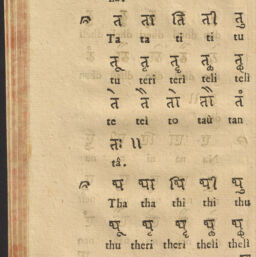 त ता ति ती तु
Ta ta ti ti tu
तू तृ तॄ तॢ तॣ
tu teri teri teli teli
ते तै तो तौ तं
te tei to taù tan
तः ॥
tâ.
थ था थि थी थु
Tha tha thi thi thu
थू थृ थॄ थॢ थॣ
thu theri theri theli theli